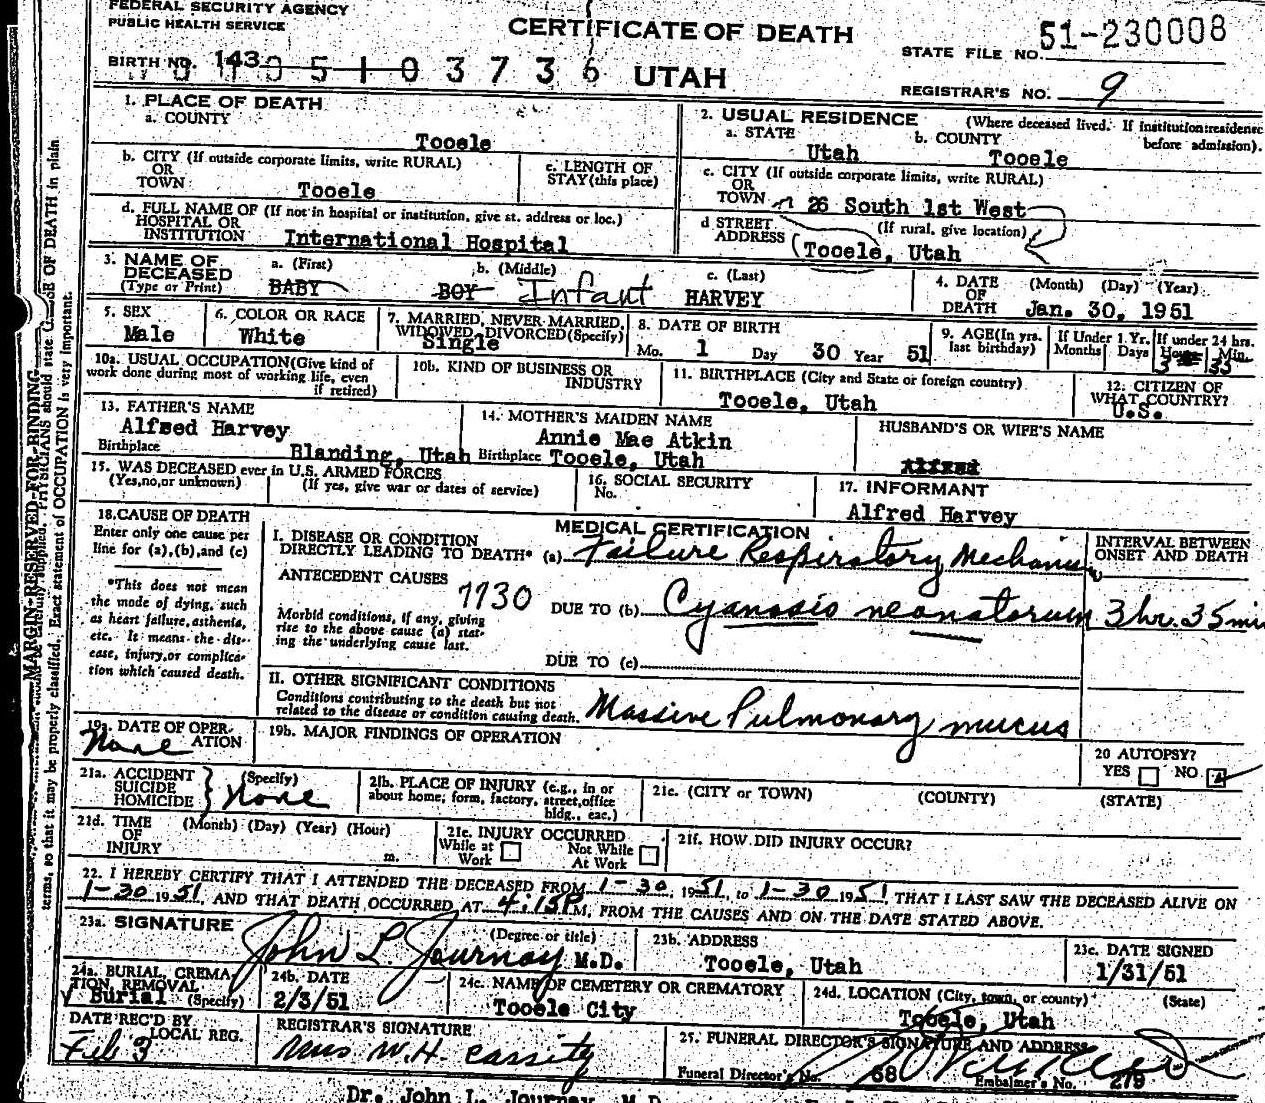 FEDERAL SECURITY AGENCY
PUBLIC HEALTH SERVICE
CERTIFICATE OF DEATH
UTAH
STATE FILE NO. 51-230008
BIRTH NO. 143 5 1 0 3 7 3 6
REGISTRAR'S NO. 9
1. PLACE OF DEATH
a. COUNTY
Tooele
2. USUAL RESIDENCE (Where deceased lived. If institution: residence before admission).
a. STATE Utah b. COUNTY Tooele
b. CITY (If outside corporate limits, write RURAL)
OR
TOWN Tooele
c. LENGTH OF STAY (this place)
c. CITY (If outside corporate limits, write RURAL)
OR
TOWN 26 South 1st West
d. FULL NAME OF (If not in hospital or institution, give st. address or loc.)
HOSPITAL OR
INSTITUTION International Hospital
d STREET ADDRESS (If rural, give location)
Tooele, Utah
3. NAME OF DECEASED (Type or Print)
a. (First) b. (Middle) c. (Last)
BABY BOY Infant HARVEY
4. DATE OF DEATH (Month) (Day) (Year)
Jan. 30, 1951
5. SEX
Male
6. COLOR OR RACE
White
7. MARRIED, NEVER MARRIED, WIDOWED, DIVORCED (Specify)
Single
8. DATE OF BIRTH
Mo. 1 Day 30 Year 51
9. AGE (In yrs. last birthday)
If Under 1 Yr. Months Days
If under 24 hrs. Hours Min.
3 35
10a. USUAL OCCUPATION (Give kind of work done during most of working life, even if retired)
10b. KIND OF BUSINESS OR INDUSTRY
11. BIRTHPLACE (City and State or foreign country)
Tooele, Utah
12. CITIZEN OF WHAT COUNTRY?
U.S.
13. FATHER'S NAME
Alfred Harvey
Birthplace Blanding, Utah
14. MOTHER'S MAIDEN NAME
Annie Mae Atkin
Birthplace Tooele, Utah
HUSBAND'S OR WIFE'S NAME
Alfred
15. WAS DECEASED ever in U.S. ARMED FORCES
(Yes, no, or unknown) (If yes, give war or dates of service)
16. SOCIAL SECURITY No.
17. INFORMANT
Alfred Harvey
18. CAUSE OF DEATH
Enter only one cause per line for (a), (b), and (c)
*This does not mean the mode of dying, such as heart failure, asthenia, etc. It means the disease, injury, or complication which caused death.
MEDICAL CERTIFICATION
I. DISEASE OR CONDITION DIRECTLY LEADING TO DEATH* (a) Failure Respiratory Mechanism
INTERVAL BETWEEN ONSET AND DEATH
ANTECEDENT CAUSES
7730
Morbid conditions, if any, giving rise to the above cause (a) stating the underlying cause last.
DUE TO (b) Cyanosis neonatorum 3 hr. 35 min
DUE TO (c)
II. OTHER SIGNIFICANT CONDITIONS
Conditions contributing to the death but not related to the disease or condition causing death.
Massive Pulmonary mucus
19a. DATE OF OPERATION
None
19b. MAJOR FINDINGS OF OPERATION
20 AUTOPSY?
YES NO
21a. ACCIDENT SUICIDE HOMICIDE (Specify)
None
21b. PLACE OF INJURY (e.g., in or about home, form, factory, street, office bldg., eac.)
21c. (CITY or TOWN) (COUNTY) (STATE)
21d. TIME OF INJURY (Month) (Day) (Year) (Hour)
m.
21e. INJURY OCCURRED
While at Work Not While At Work
21f. HOW DID INJURY OCCUR?
22. I HEREBY CERTIFY THAT I ATTENDED THE DECEASED FROM 1-30, 1951, to 1-30 1951, THAT I LAST SAW THE DECEASED ALIVE ON
1-30 1951, AND THAT DEATH OCCURRED AT 4:15P M, FROM THE CAUSES AND ON THE DATE STATED ABOVE.
23a. SIGNATURE (Degree or title)
John L. Journay M.D.
23b. ADDRESS
Tooele, Utah
23c. DATE SIGNED
1/31/51
24a. BURIAL, CREMATION, REMOVAL (Specify)
Burial
24b. DATE
2/3/51
24c. NAME OF CEMETERY OR CREMATORY
Tooele City
24d. LOCATION (City, town, or county) (State)
Tooele, Utah
DATE REC'D BY LOCAL REG.
Feb 3
REGISTRAR'S SIGNATURE
Mrs W.H. Cassity
25. FUNERAL DIRECTOR'S SIGNATURE AND ADDRESS
Funeral Director's No. 68 Embalmer's No. 279
Dr. John L. Journay M.D.
MARGIN RESERVED FOR BINDING
terms, so that it may be properly classified. Exact statement of OCCUPATION is very important.